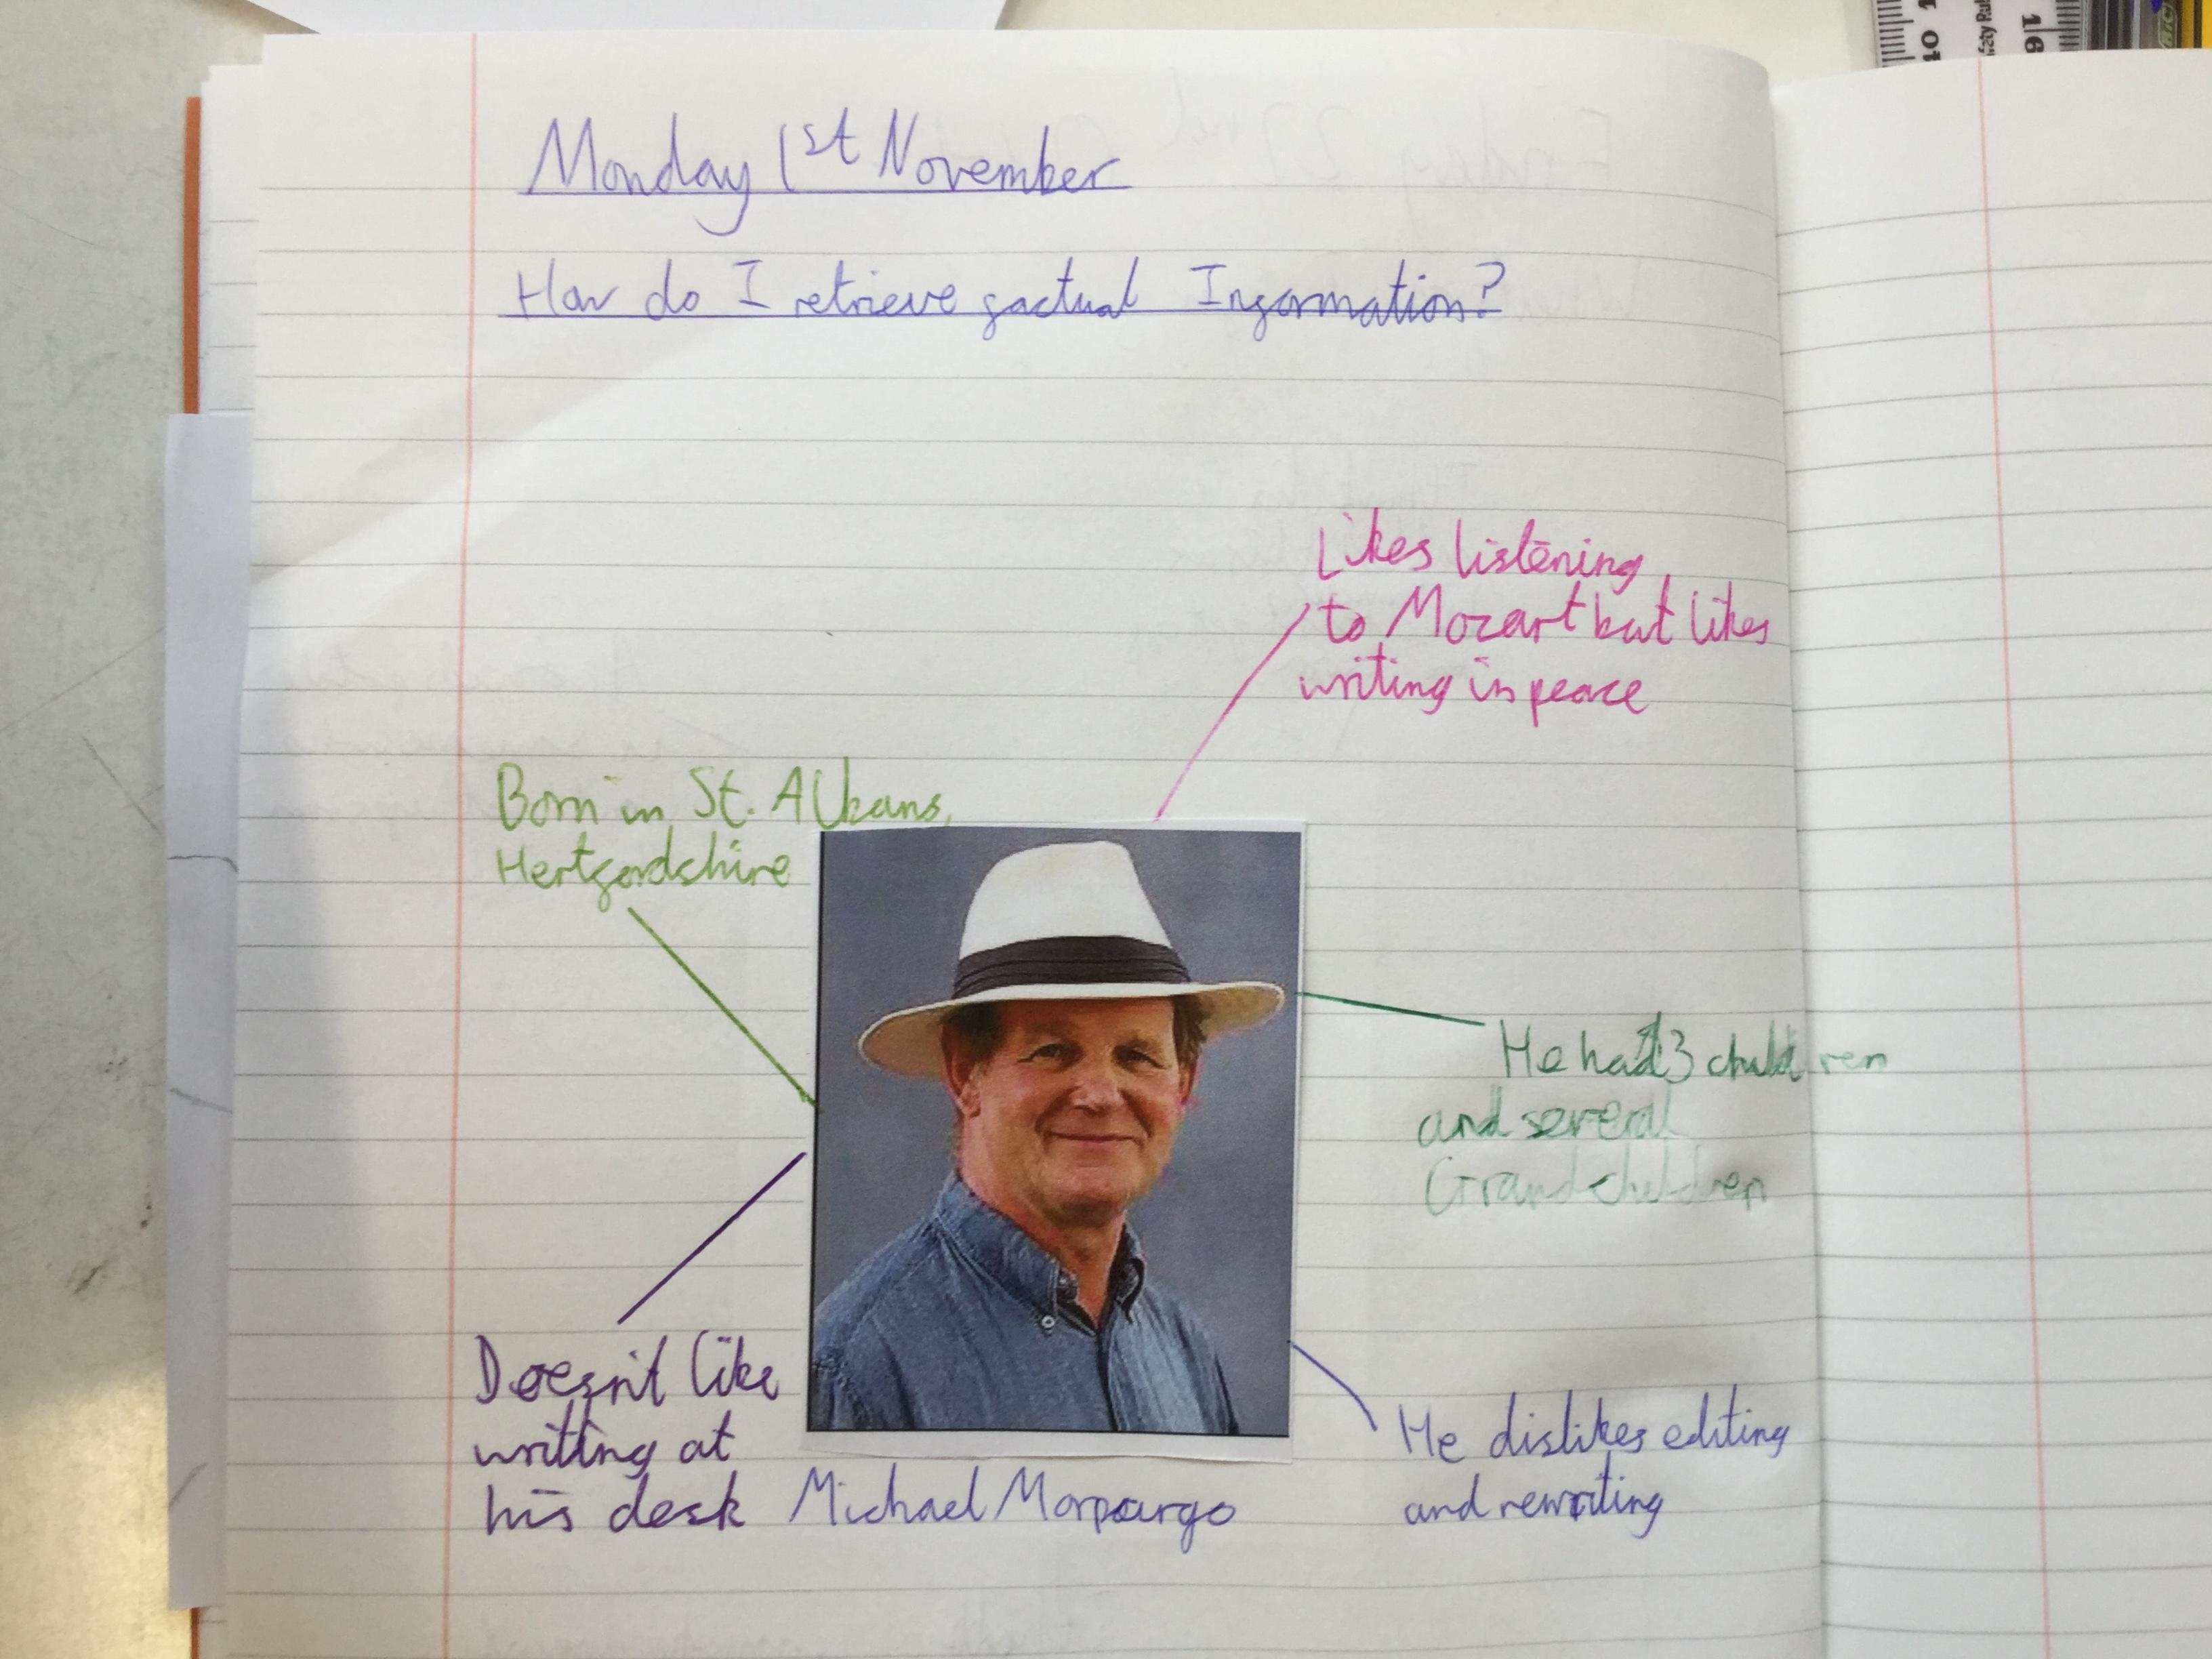 Monday 1st November
How do I retrieve factual Information?
Likes listening
to Mozart but likes
writing in peace
Born in St. Albans,
Hertfordshire
He had 3 children
and several
Grandchildren
Doesn't like
writing at
his desk
Michael Morpurgo
He dislikes editing
and rewriting
16